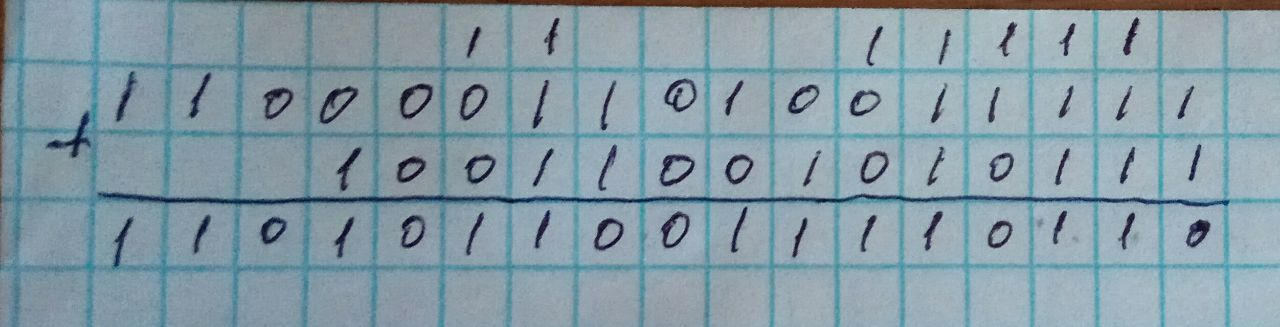 1 1 1 1 1 1 1
1 1 0 0 0 0 1 1 0 1 0 0 1 1 1 1 1
+
1 0 0 1 1 0 0 1 0 1 0 1 1 1
1 1 0 1 0 1 1 0 0 1 1 1 1 0 1 1 0